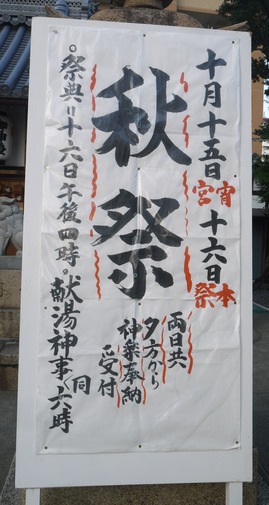 十月十五日宵宮 十六日本祭
秋祭
両日共
夕方から
神楽奉納
受付
○祭典＝十六日午後四時○献湯神事〃同六時